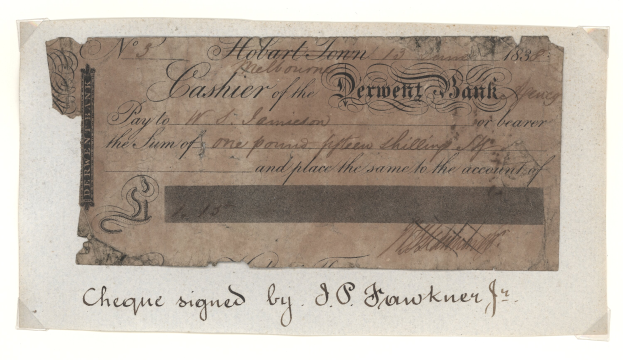 No 3 Hobart Town 13 June 1838
Melbourne
Cashier of the Derwent Bank Agency
DERWENT BANK
Pay to W. S. Jamieson or bearer
the Sum of £ one pound fifteen shilling
and place the same to the account of
£ 1. 15
Cheque signed by J. P. Fawkner Jr.